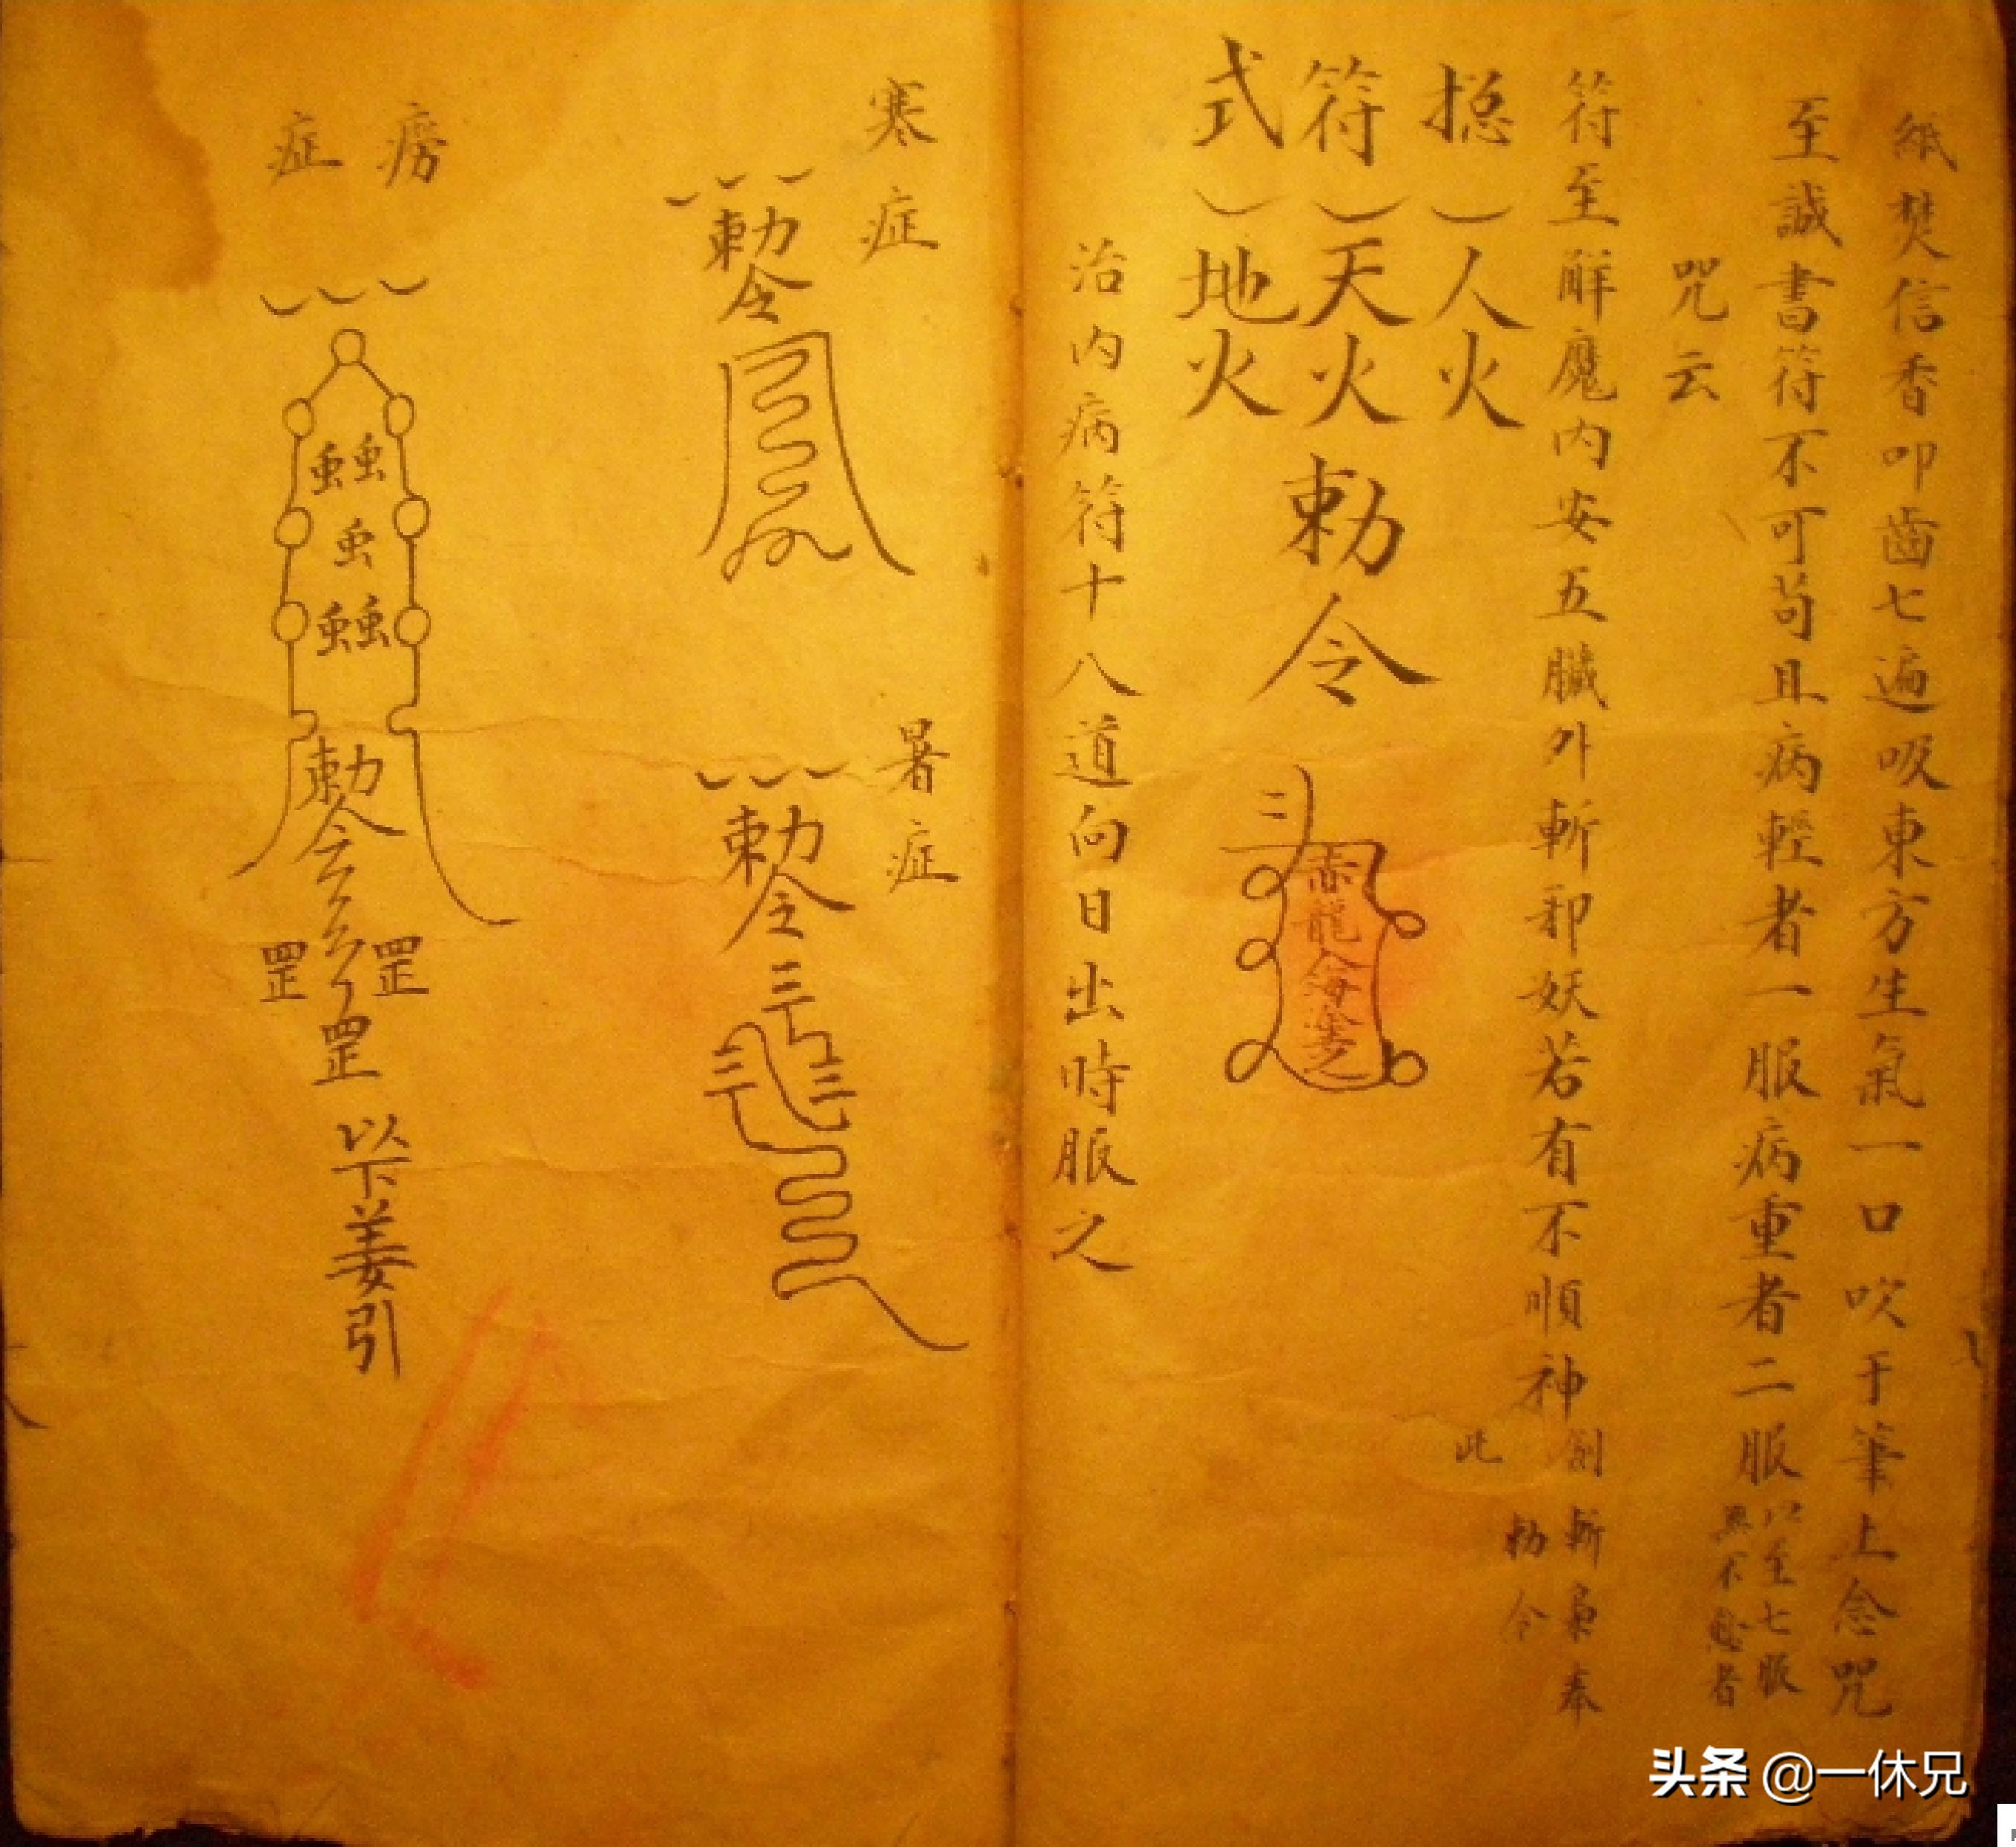 紙焚信香叩齒七遍吸東方生氣一口吹于筆上念咒
至誠書符不可苟且病輕者一服病重者二服
以至七服
無不愈者
咒云
符至解魔內安五臟外斬邪妖若有不順神劍斬梟奉
此勅令
捴符式
人火
天火
地火
勅令
赤龍
治内病符十八道向日出時服之
寒症
勅令
暑症
勅令
癆症
䖝䖝
䖝
䖝䖝
勅令
罡罡
罡
以下姜引
头条 @一休兄